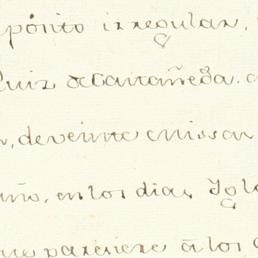 pósito irregular,
Ruiz de Castañeda.
, de veinte missas
año, en los dias, Y g
que pareciere á los